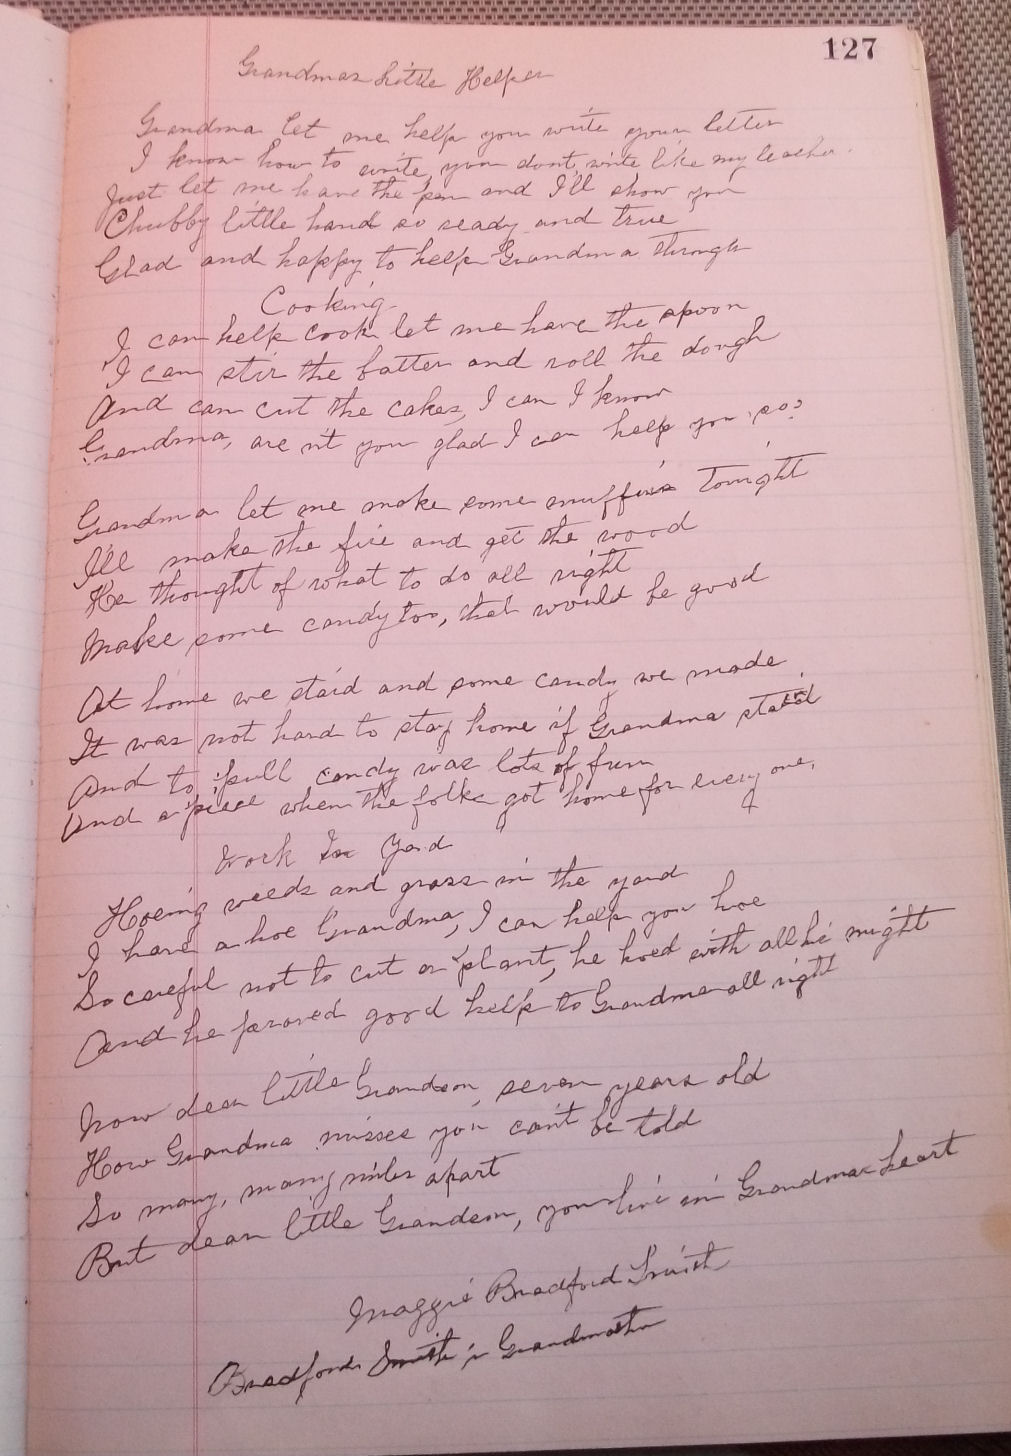 127
Grandmas Little Helper
Grandma let me help you write your letter
I know how to write, you dont write like my teacher.
Just let me have the pen and I'll show you
Chubby little hand so ready and true
Glad and happy to help Grandma through
Cooking
I can help cook let me have the spoon
I can stir the batter and roll the dough
And can cut the cakes, I can I know
Grandma, are n't you glad I can help you so?
Grandma let me make some muffins tonight
I'll make the fire and get the wood
He thought of what to do all right
Make some candy too, that would be good
At home we staid and some candy we made
It was not hard to stay home if Grandma staid
And to pull candy was lots of fun
And a piece when the folks got home for every one.
Work In Yard
Hoeing weeds and grass in the yard
I have a hoe Grandma, I can help you hoe
So careful not to cut a plant, he hoed with all his might
And he proved good help to Grandma all right
Now dear little Grandson, seven years old
How Grandma misses you can't be told
So many, many miles apart
But dear little Grandson, you live in Grandmas heart
Maggie Bradford Smith
Bradford Smith's Grandmother